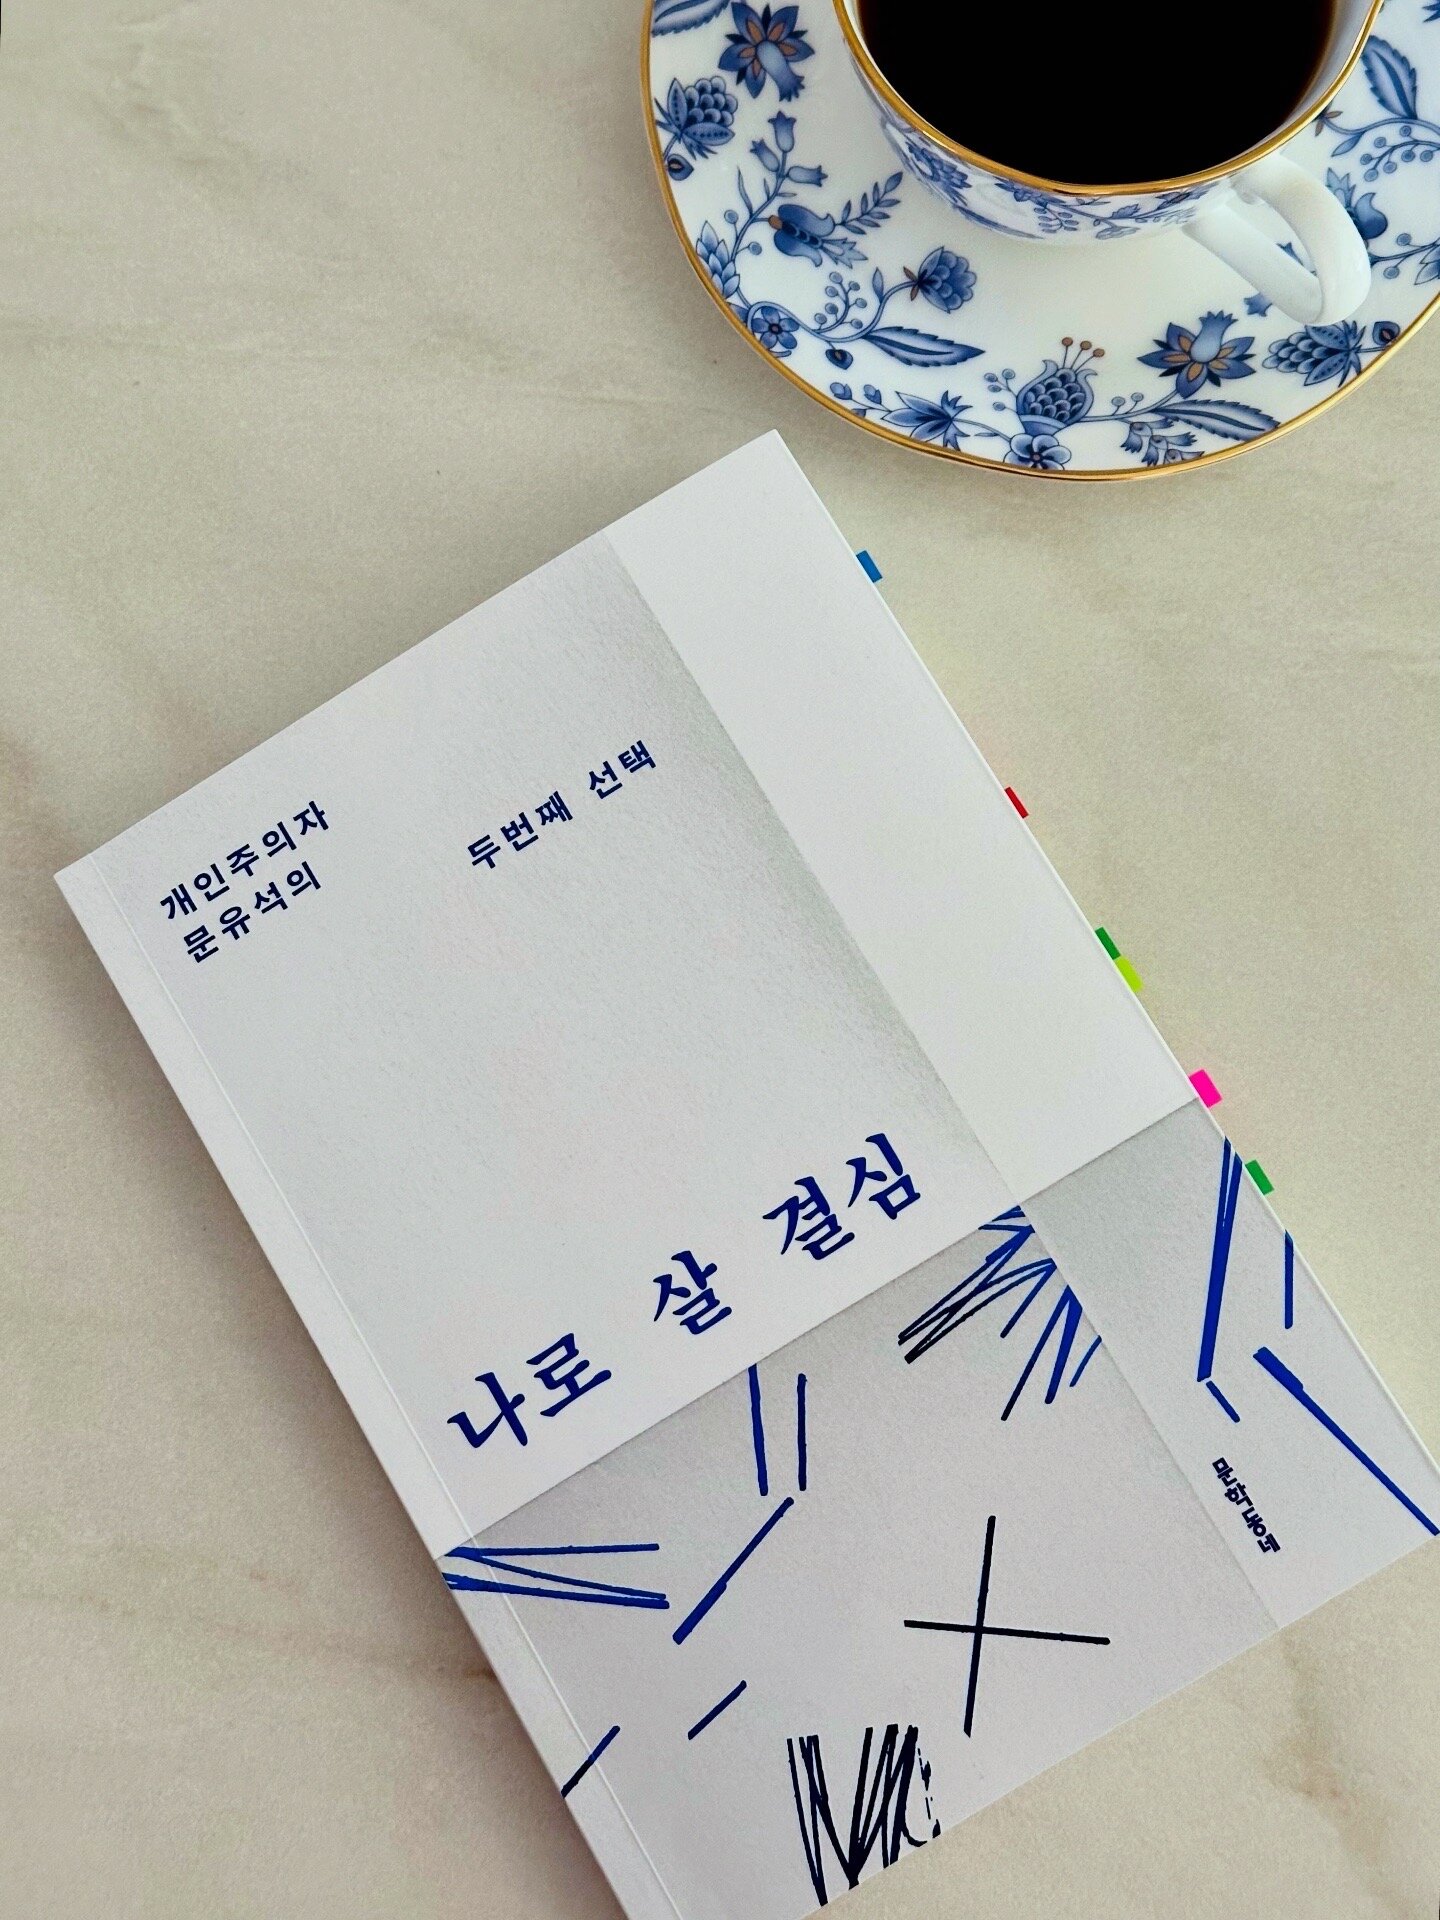 개인주의자
문유석의
두번째 선택
나로 살 결심
문학동네